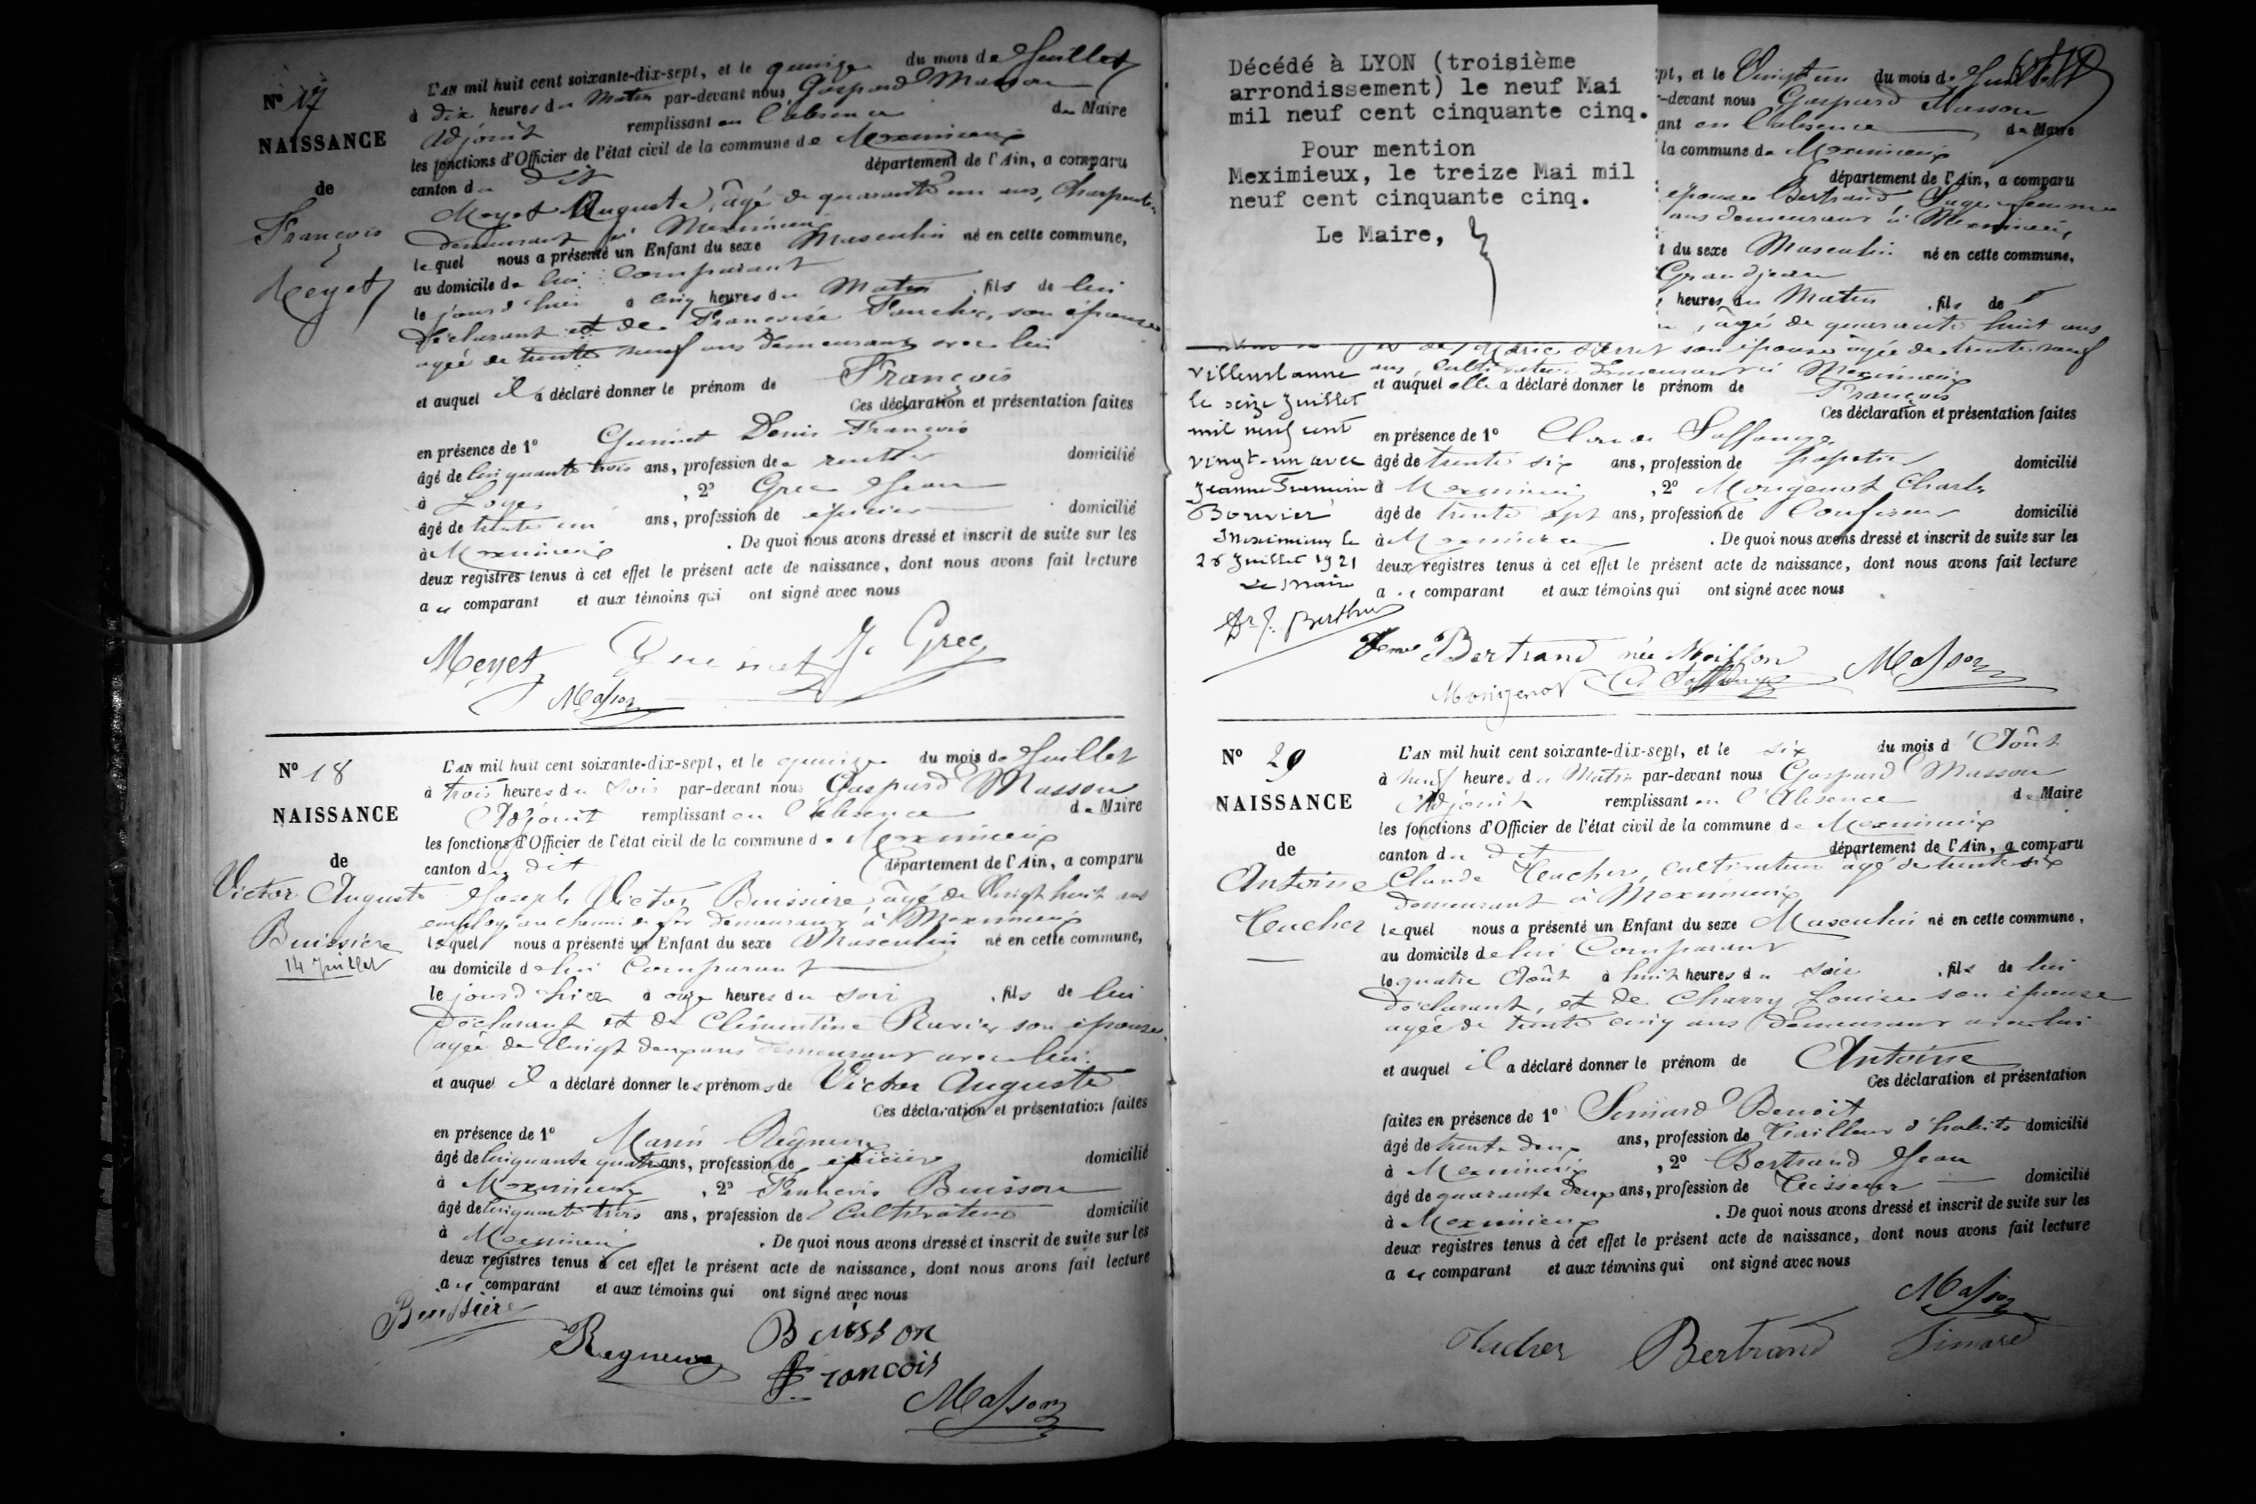 L'AN mil huit cent soixante-dix-sept, et le quinze du mois de Juillet
N° 17
à dix heures du Matin par-devant nous Gaspard Masson
Adjoint remplissant en l'absence du Maire
NAISSANCE
les fonctions d'Officier de l'état civil de la commune de Meximieux
canton du dit département de l'Ain, a comparu
de
Meyet Auguste, âgé de quarante un ans, Charpentier
François
demeurant à Meximieux
lequel nous a présenté un Enfant du sexe Masculin né en cette commune,
Meyet
au domicile de lui Comparant
le jourd'hui à cinq heures du Matin, fils de lui
déclarant et de Françoise son épouse
agée de trente neuf ans demeurant avec lui
et auquel il a déclaré donner le prénom de François
Ces déclaration et présentation faites
en présence de 1° Guinet Denis François
âgé de cinquante trois ans, profession de rentier domicilié
à Loyes, 2° Grec Jean
âgé de trente un ans, profession de épicier domicilié
à Meximieux. De quoi nous avons dressé et inscrit de suite sur les
deux registres tenus à cet effet le présent acte de naissance, dont nous avons fait lecture
au comparant et aux témoins qui ont signé avec nous
Meyet Guinet J. Grec
Masson
N° 18
L'AN mil huit cent soixante-dix-sept, et le quinze du mois de Juillet
à trois heures du Soir par-devant nous Gaspard Masson
NAISSANCE
Adjoint remplissant en l'absence du Maire
les fonctions d'Officier de l'état civil de la commune de Meximieux
de
canton du dit département de l'Ain, a comparu
Victor Auguste
Joseph Victor Buissière, âgé de Vingt huit ans
employé au chemin de fer demeurant à Meximieux
Buissière
lequel nous a présenté un Enfant du sexe Masculin né en cette commune,
14 Juillet
au domicile de lui Comparant
le jourd'hier à onze heures du soir, fils de lui
déclarant et de Clémentine son épouse
agée de Vingt deux ans demeurant avec lui
et auquel il a déclaré donner les prénoms de Victor Auguste
Ces déclaration et présentation faites
en présence de 1° Marin
âgé de cinquante quatre ans, profession de épicier domicilié
à Meximieux, 2° François Buisson
âgé de cinquante trois ans, profession de Cultivateur domicilié
à Meximieux. De quoi nous avons dressé et inscrit de suite sur les
deux registres tenus à cet effet le présent acte de naissance, dont nous avons fait lecture
au comparant et aux témoins qui ont signé avec nous
Buissière
Buisson
François
Masson
Décédé à LYON (troisième
arrondissement) le neuf Mai
mil neuf cent cinquante cinq.
Pour mention
Meximieux, le treize Mai mil
neuf cent cinquante cinq.
Le Maire,
pt, et le Vingt un du mois de Juillet
-devant nous Gaspard Masson
ant en l'absence du Maire
la commune de Meximieux
département de l'Ain, a comparu
épouse Bertrand, Sage femme
ans demeurant à Meximieux
t du sexe Masculin né en cette commune,
Grandjean
heures du Matin, fils de
, âgé de quarante huit ans
Marie son épouse âgée de trente neuf
ans, Cultivateurs demeurant à Meximieux
et auquel elle a déclaré donner le prénom de François
Ces déclaration et présentation faites
villeurbanne
le seize Juillet
mil neuf cent
vingt-un avec
Jeanne
Bouvier
Meximieux le
26 Juillet 1921
Le Maire
en présence de 1° Claude
âgé de trente six ans, profession de domicilié
à Meximieux, 2° Mougenot Charles
âgé de trente sept ans, profession de Confiseur domicilié
à Meximieux. De quoi nous avons dressé et inscrit de suite sur les
deux registres tenus à cet effet le présent acte de naissance, dont nous avons fait lecture
a comparant et aux témoins qui ont signé avec nous
Bertrand née
Masson
Mougenot
N° 29
L'AN mil huit cent soixante-dix-sept, et le six du mois d'Août
à neuf heures du Matin par-devant nous Gaspard Masson
NAISSANCE
Adjoint remplissant en l'Absence du Maire
les fonctions d'Officier de l'état civil de la commune de Meximieux
de
canton du dit département de l'Ain, a comparu
Antoine
Claude Teucher, cultivateur âgé de trente six
demeurant à Meximieux
Teucher
lequel nous a présenté un Enfant du sexe Masculin né en cette commune,
au domicile de lui Comparant
le quatre Août à huit heures du soir, fils de lui
déclarant, et de Charry Louise son épouse
agée de trente cinq ans demeurant avec lui
et auquel il a déclaré donner le prénom de Antoine
Ces déclaration et présentation
faites en présence de 1° Benoit
âgé de trente deux ans, profession de Tailleur d'habits domicilié
à Meximieux, 2° Bertrand Jean
âgé de quarante deux ans, profession de Tisseur domicilié
à Meximieux. De quoi nous avons dressé et inscrit de suite sur les
deux registres tenus à cet effet le présent acte de naissance, dont nous avons fait lecture
au comparant et aux témoins qui ont signé avec nous
Masson
Bertrand